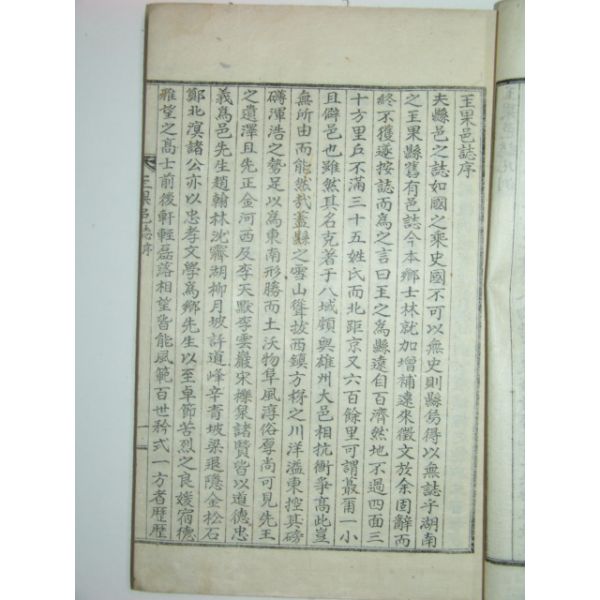 玉果邑誌序
夫縣邑之誌如國之乘史國不可以無史則縣烏得以無誌乎湖南
之玉果縣舊有邑誌今本鄉士林就加增補遠來徵文於余固辭而
終不獲遂按誌而爲之言曰玉之爲縣遠自百濟然地不過四面三
十方里戶不滿三十五姓氏而北距京又六百餘里可謂蕞爾一小
且僻邑也雖然其名克著于八域頗與雄州大邑相抗衡爭高此豈
無所由而能然哉蓋縣之雪山聳拔西鎭方稃之川洋溢東控其磅
礴渾浩之勢足以爲東南形勝而土沃物阜風淳俗厚尚可見先王
之遺澤且先正金河西及李天默李雲巖宋櫟泉諸賢皆以道德忠
義爲邑先生趙翰林沈霽湖柳月坡許道峰辛青坡梁退隱金松石
鄭北溟諸公亦以忠孝文學爲鄉先生以至卓節苦烈之良媛宿德
雅望之高士前後軒輊磊落相望皆能風範百世矜式一方者歷歷
玉果邑誌序
一